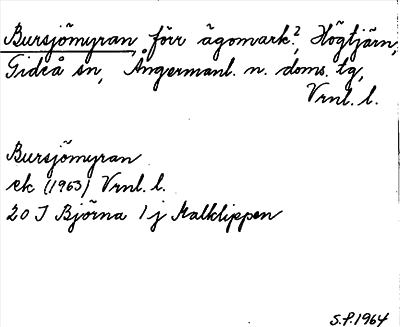 Bursjömyran, förr ägomark?, Högtjärn,
Gideå sn, Ångermanl. n. doms. tg,
Vrnl. l.
Bursjömyran
ek (1963) Vrnl. l.
20 I Björna 1 j Kalklippen
S.P. 1964